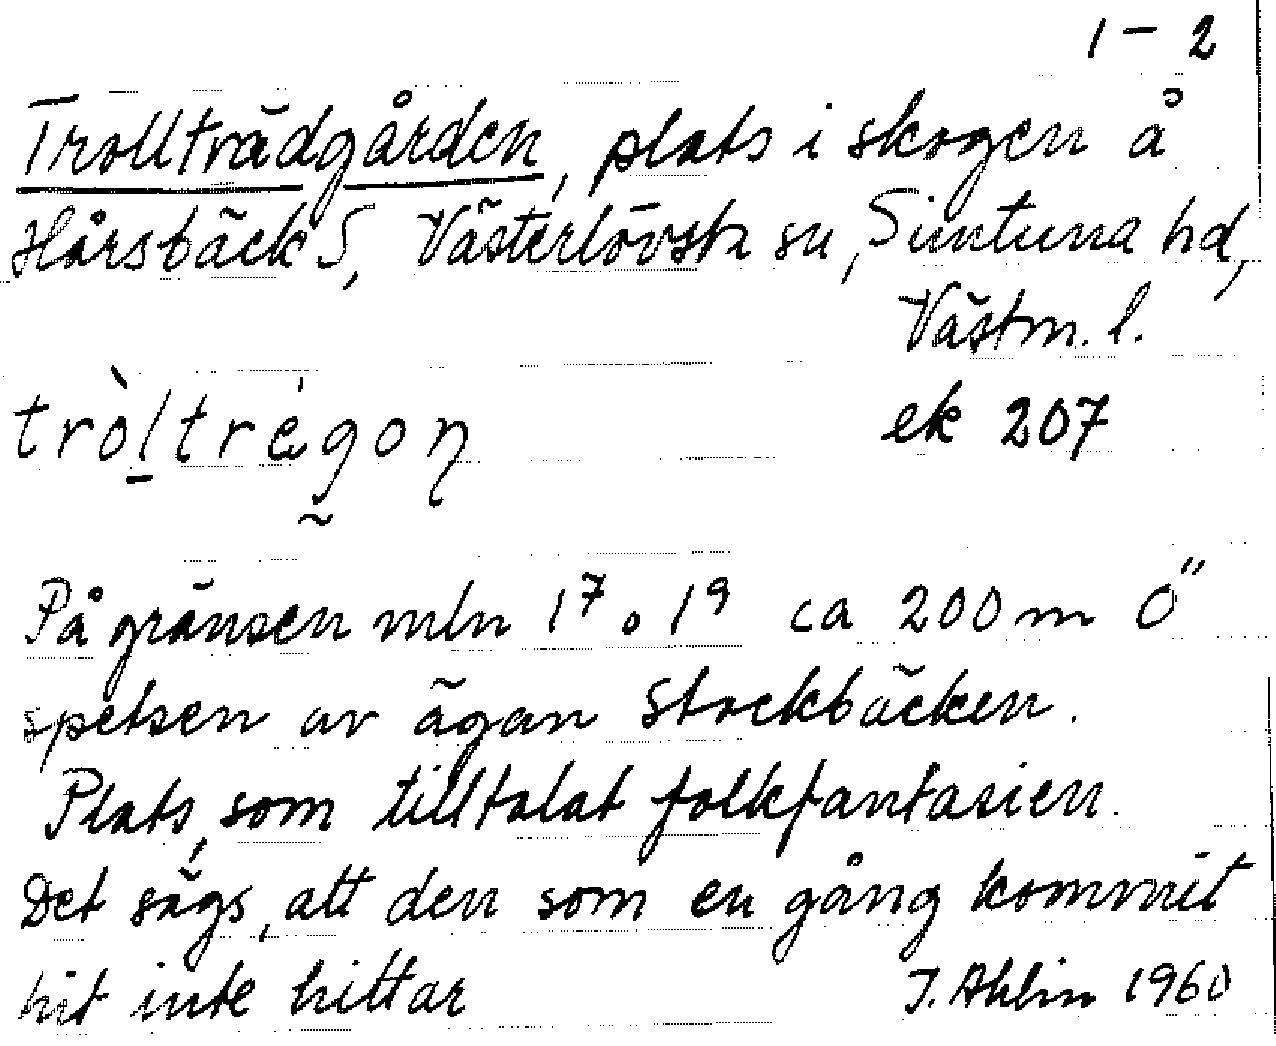 1-2
Trollträdgården, plats i skogen å
Hårsbäck S, Västerlövsta sn, Simtuna hd,
Västm. l.
tròltrégon
ek 207
På gränsen mln 1⁷ o 1⁹ ca 200 m Ö
spetsen av ägan Stockbäcken.
Plats, som tilltalat folkfantasien.
Det sägs, att den som en gång kommit
hit inte hittar
J. Ahlin 1960